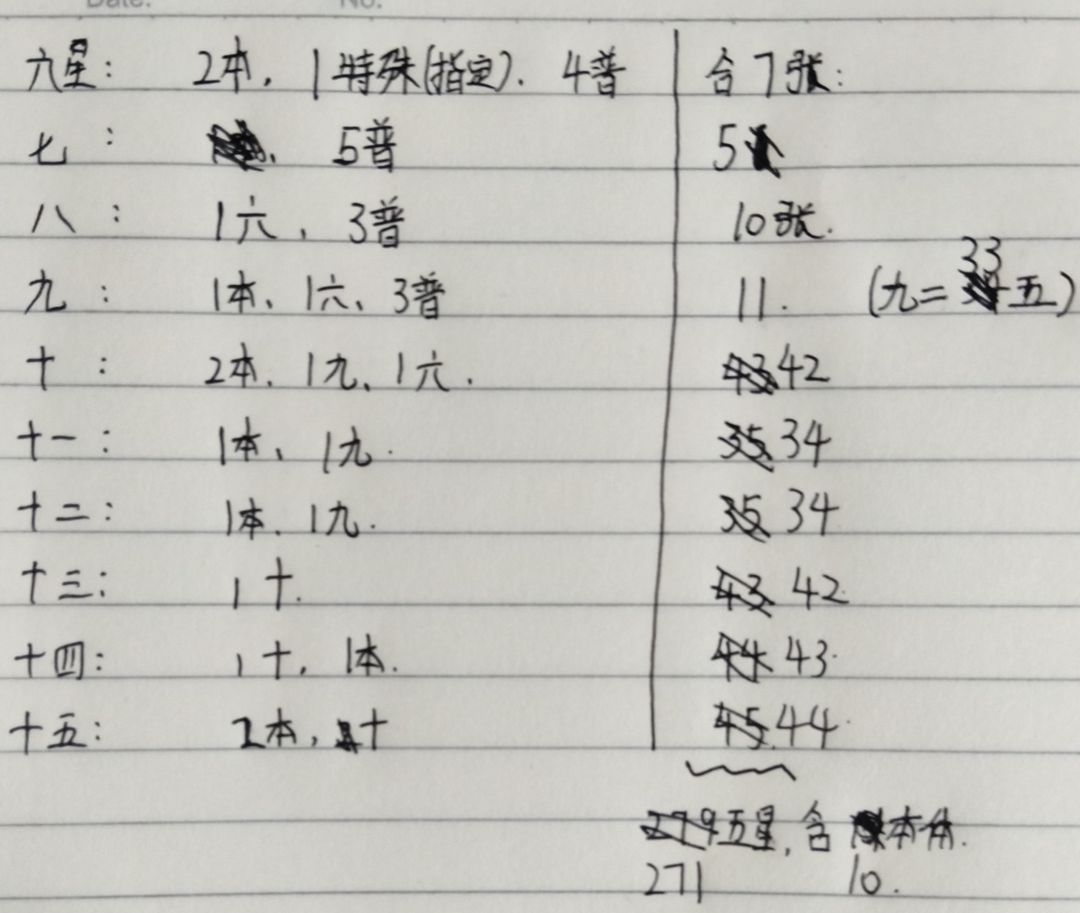 Date: No.
六星: 2本, 1特殊(指定). 4普 合7张:
七: 5普 5
八: 1六, 3普 10张.
九: 1本、1六、3普 11. (九=33五)
十: 2本、1九、1六. 42
十一: 1本、1九. 34
十二: 1本、1九. 34
十三: 1十. 42
十四: 1十, 1本. 43.
十五: 2本, 1十 44.
五星, 含本体.
271 10.